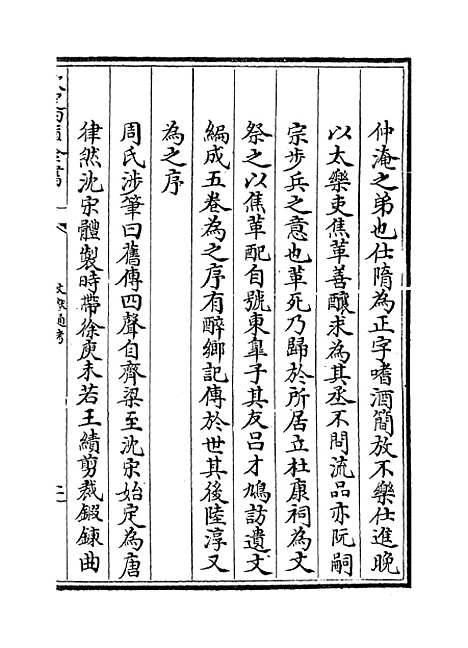 仲淹之弟也仕隋為正字嗜酒簡放不樂仕進晚
以太樂吏焦革善釀求為其丞不問流品亦阮嗣
宗步兵之意也革死乃歸於所居立杜康祠為文
祭之以焦革配自號東臯子其友呂才鳩訪遺文
編成五卷為之序有醉鄉記傳於世其後陸淳又
為之序
周氏涉筆曰舊傳四聲自齊梁至沈宋始定為唐
律然沈宋體製時帶徐庾未若王績剪裁鍛鍊曲
文獻通考